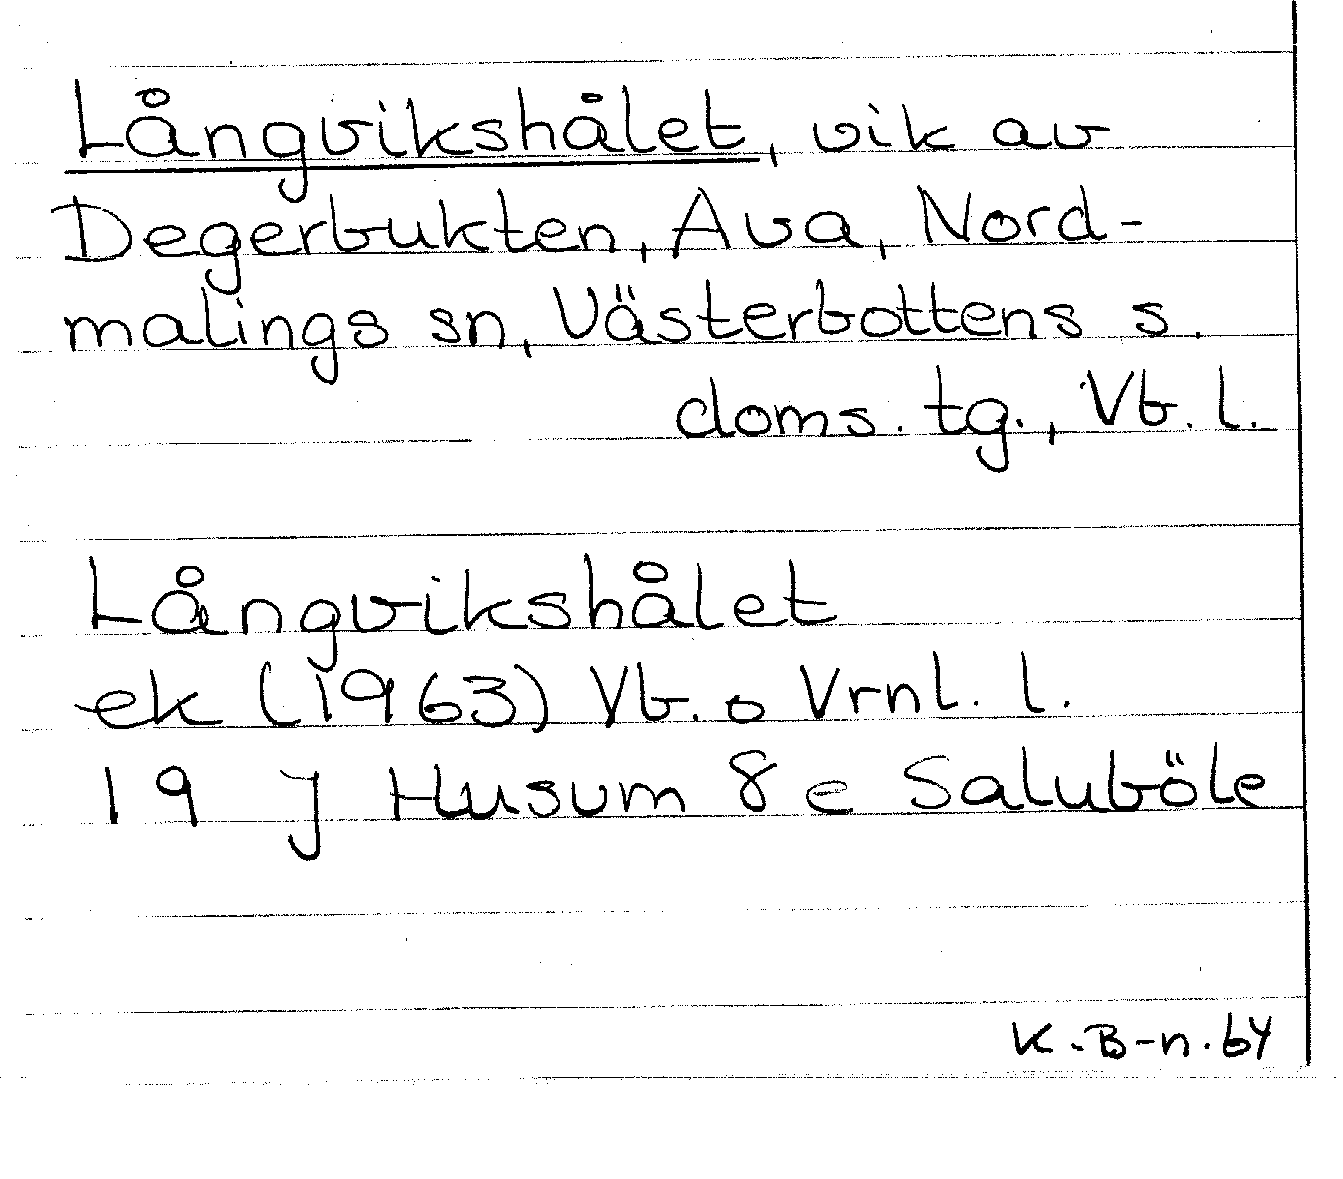 Långvikshålet, vik av
Degerbukten, Ava, Nord-
malings sn, Västerbottens s.
doms. tg., Vb. l.
Långvikshålet
ek (1963) Vb. o Vrnl. l.
19 J Husum 8 e Saluböle
K.B-n. 64